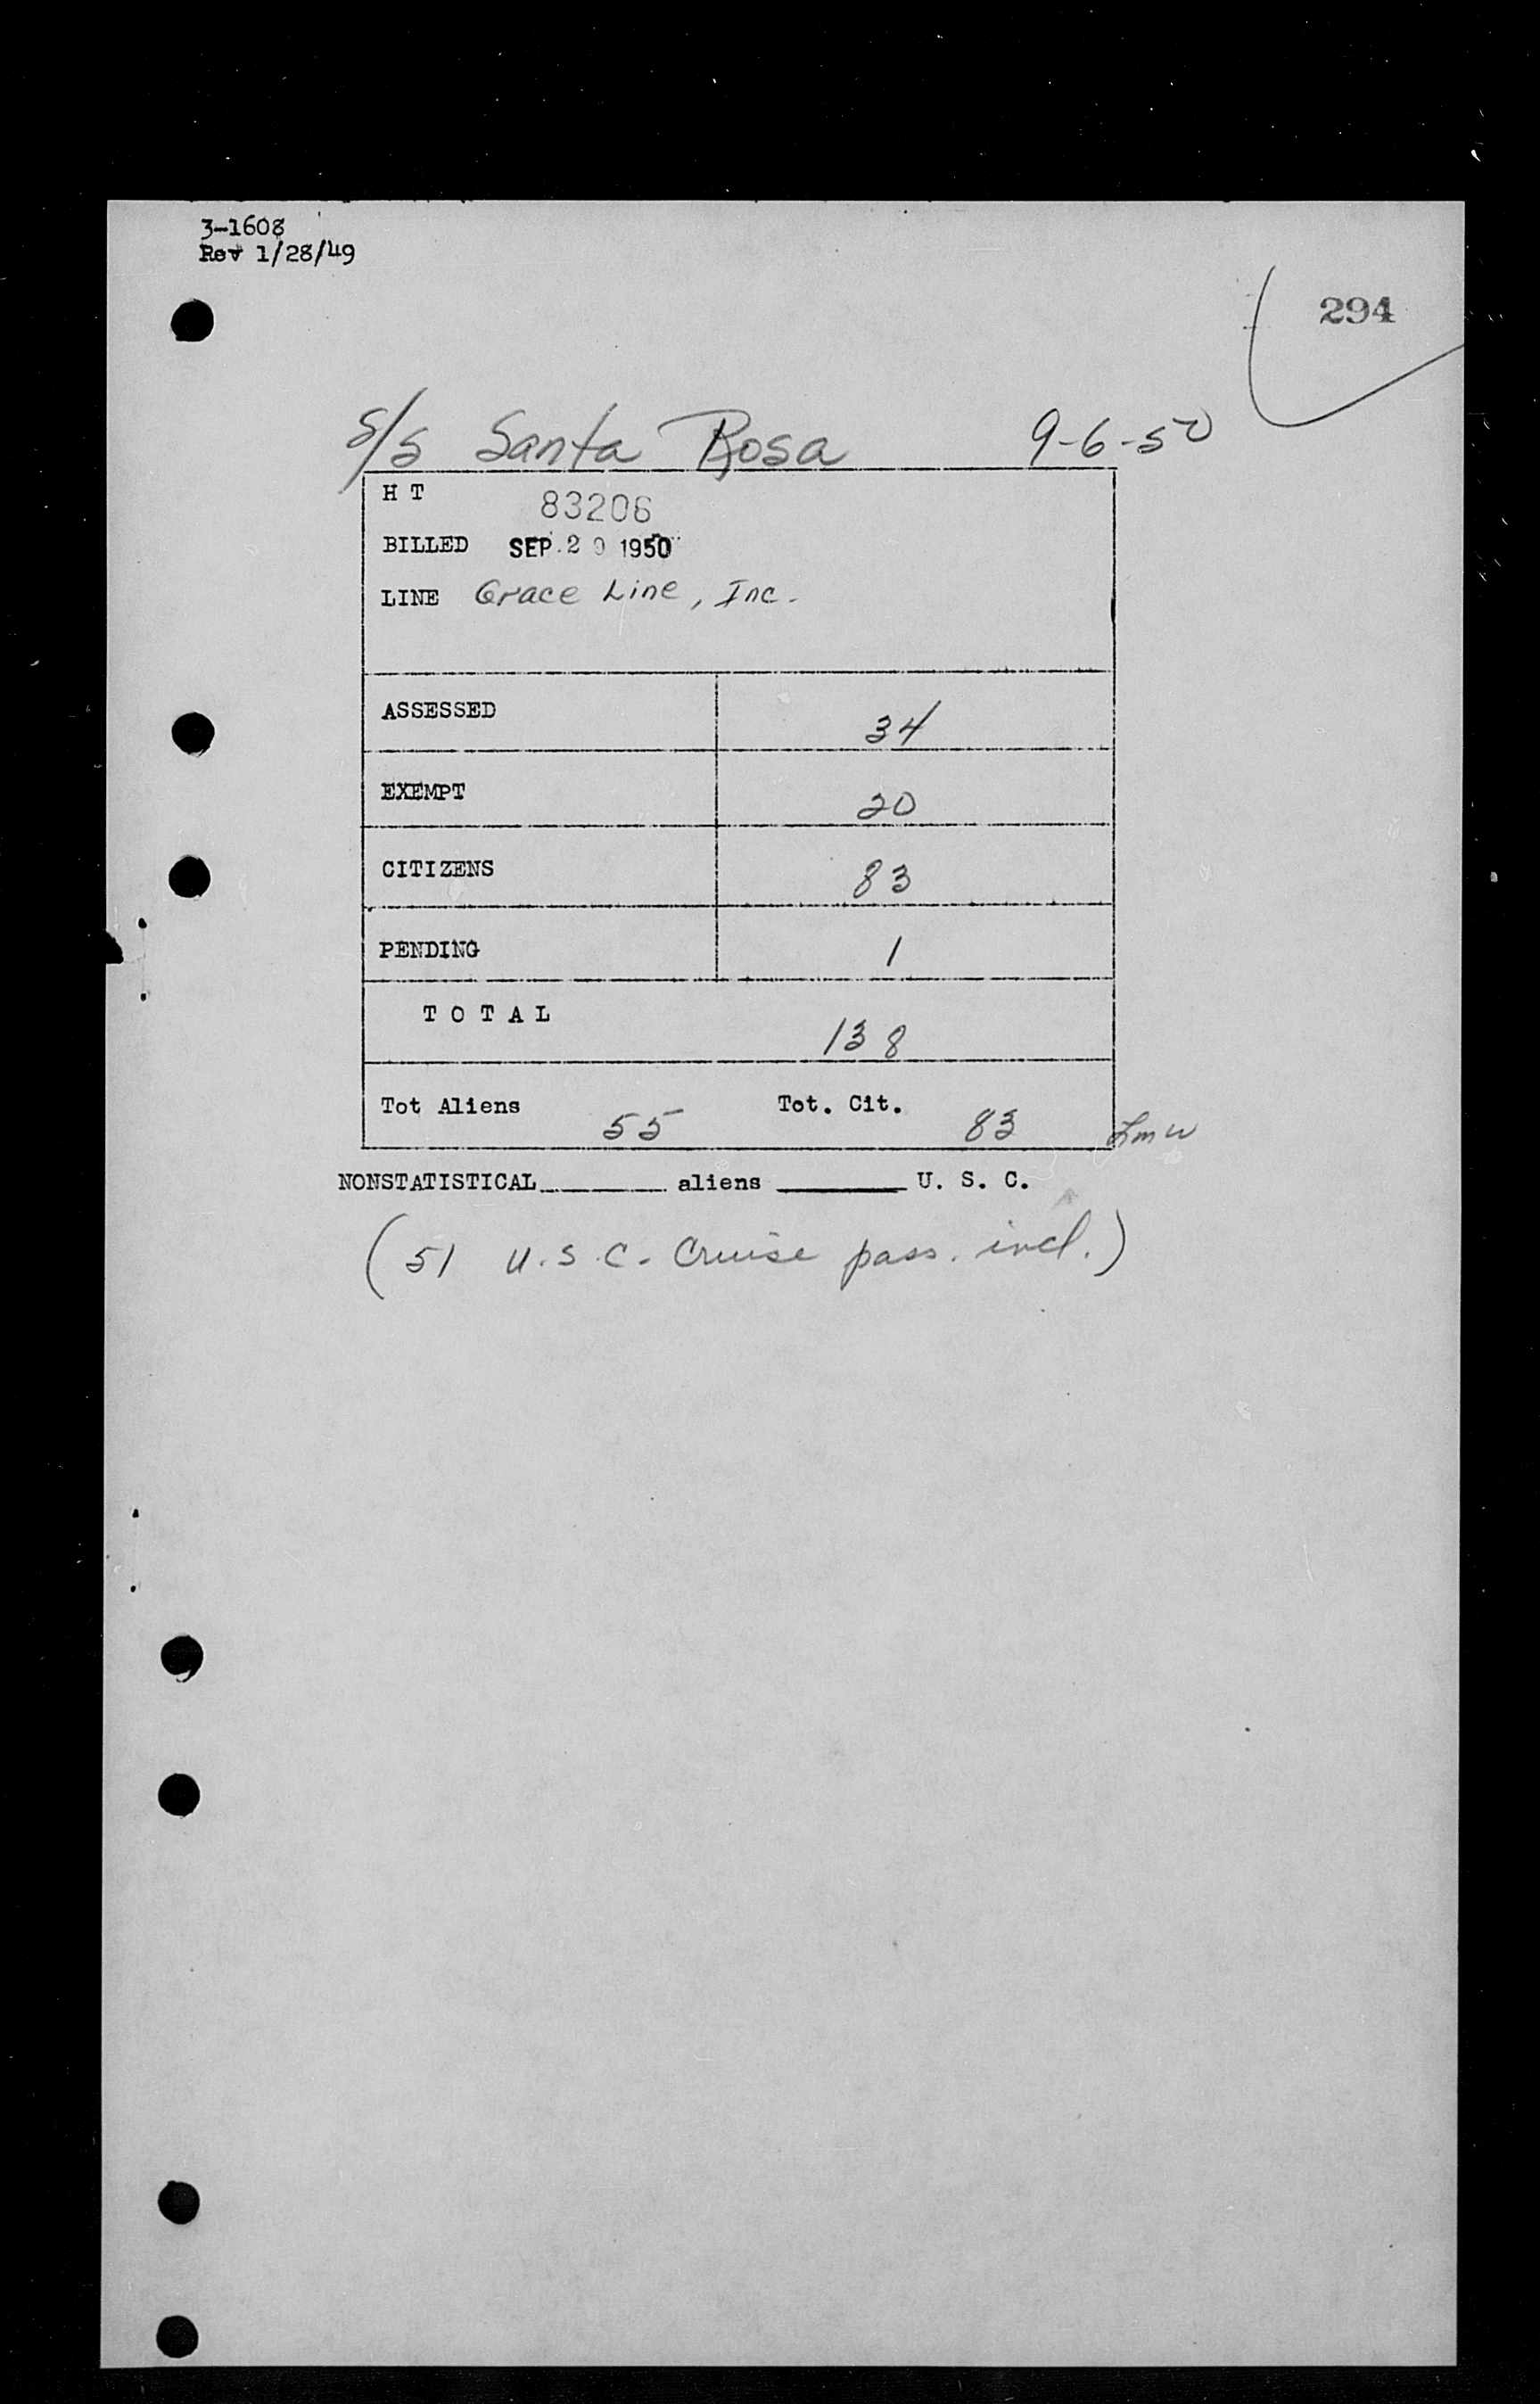 3-1608
Rev 1/28/49
294
S/S Santa Rosa 9-6-50
H T 83206
BILLED SEP 20 1950
LINE Grace Line, Inc.
ASSESSED 34
EXEMPT 20
CITIZENS 83
PENDING 1
TOTAL 138
Tot Aliens 55 Tot. Cit. 83
NONSTATISTICAL aliens U. S. C.
(51 U.S.C. Cruise pass. incl.)